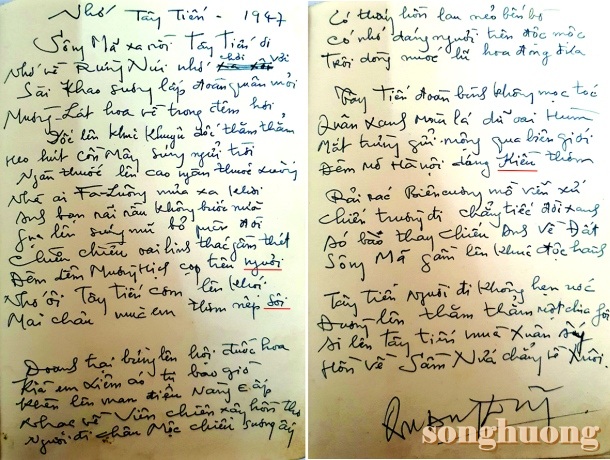 Nhớ Tây Tiến - 1947
Sông Mã xa rồi Tây Tiến ơi
Nhớ về Rừng Núi nhớ chơi vơi
Sài Khao sương lấp đoàn quân mỏi
Mường-Lát hoa về trong đêm hơi
Dốc lên khúc khuỷu dốc thăm thẳm
Heo hút cồn Mây súng ngửi trời
Ngàn thước lên cao ngàn thước xuống
Nhà ai Fa-Luông mưa xa khơi
Anh bạn dãi dầu không bước nữa
Gục lên súng mũ bỏ quên đời
Chiều chiều oai linh thác gầm thét
Đêm đêm Mường Hịch cọp trêu người
Nhớ ôi Tây Tiến cơm lên khói
Mai châu mùa em thơm nếp sôi
Doanh trại bừng lên hội đuốc hoa
Kìa em xiêm áo tự bao giờ
Khèn lên man điệu Nàng e ấp
Nhạc về Viên chiăn xây hồn thơ
Người đi Châu Mộc chiều sương ấy
Có thấy hồn lau nẻo bến bờ
Có nhớ dáng người trên độc mộc
Trôi dòng nước lũ hoa đong đưa
Tây Tiến đoàn binh không mọc tóc
Quân xanh màu lá dữ oai Hùm
Mắt trừng gửi mộng qua biên giới
Đêm mơ Hà nội dáng Kiều thơm
Rải rác Biên cương mồ viễn xứ
Chiến trường đi chẳng tiếc đời xanh
Áo bào thay chiếu Anh về Đất
Sông Mã gầm lên khúc độc hành
Tây Tiến Người đi không hẹn ước
Đường lên thăm thẳm một chia phôi
Ai lên Tây tiến mùa Xuân ấy
Hồn về Sầm Nứa chẳng về Xuôi.
songhuong